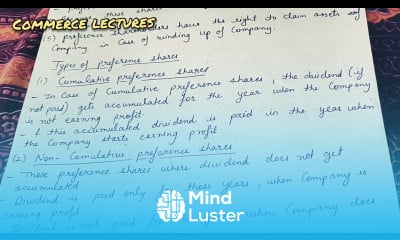 COMMERCE LECTURES
these shares
5) preference shareholders have the right to claim assets of
Company in case of winding up of Company.
Types of preference shares
(1) Cumulative preference shares
- In case of Cumulative preference shares, the dividend (if
not paid) gets accumulated for the year when the Company
is not earning profit.
- & this accumulated dividend is paid in the year when
the Company starts earning profit.
(2) Non-Cumulative preference shares
- Those preference shares where dividend does not get
accumulated
- Dividend is paid only for those years, when Company is
earning profit
- Dividend is not paid for when Company does
Mind
Luster